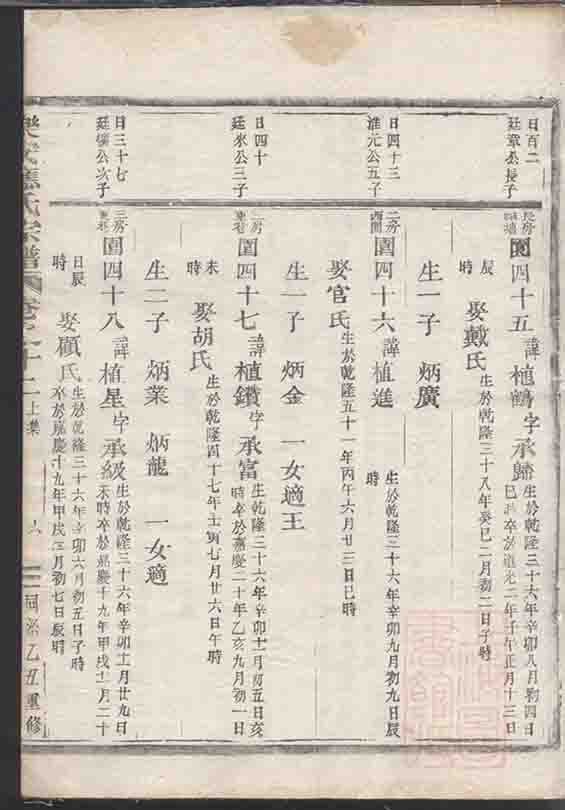 日百二
廷章公長子
長房
園四十五 諱植鶴 字承歸 生於乾隆三十六年辛卯八月初四日
巳時卒於道光二年壬午正月十三日
辰時 娶戴氏 生於乾隆三十八年癸巳二月初二日子時
生一子 炳廣
日四十三
淮元公五子
二房
園四十六 諱植進 生於乾隆三十六年辛卯九月初九日辰
時
娶官氏 生於乾隆五十一年丙午六月廿三日巳時
生一子 炳金 一女適王
日四十
廷來公三子
二房
園四十七 諱植鑽 字承富 生於乾隆三十六年辛卯十一月初五日亥
時卒於嘉慶二十年乙亥九月初一日
未時 娶胡氏 生於乾隆四十七年壬寅七月廿六日午時
生二子 炳業 炳龍 一女適
日三十七
廷 公次子
三房
園四十八 諱植星 字承級 生於乾隆三十六年辛卯十一月廿九日
未時卒於嘉慶十九年甲戌十二月二十
日辰時 娶顧氏 生於乾隆三十六年辛卯六月初五日子時
卒於嘉慶十九年甲戌三月初七日辰時
氏宗譜 卷之十二上集 六 同治乙丑重修